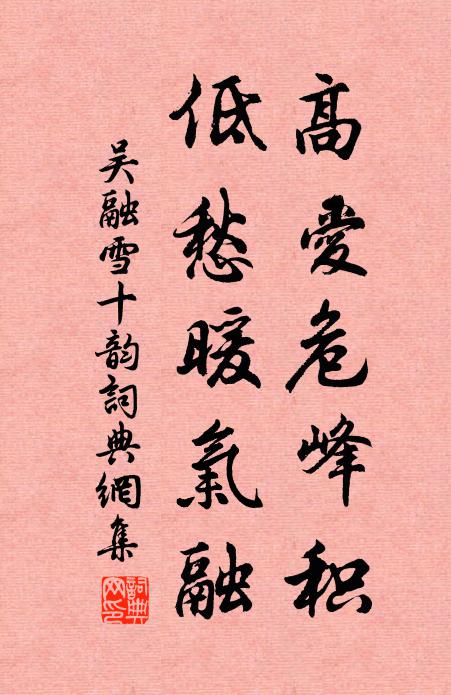 高愛危峰积
低愁暖氣融
吴融雪十韵詞典網集
詞典网印